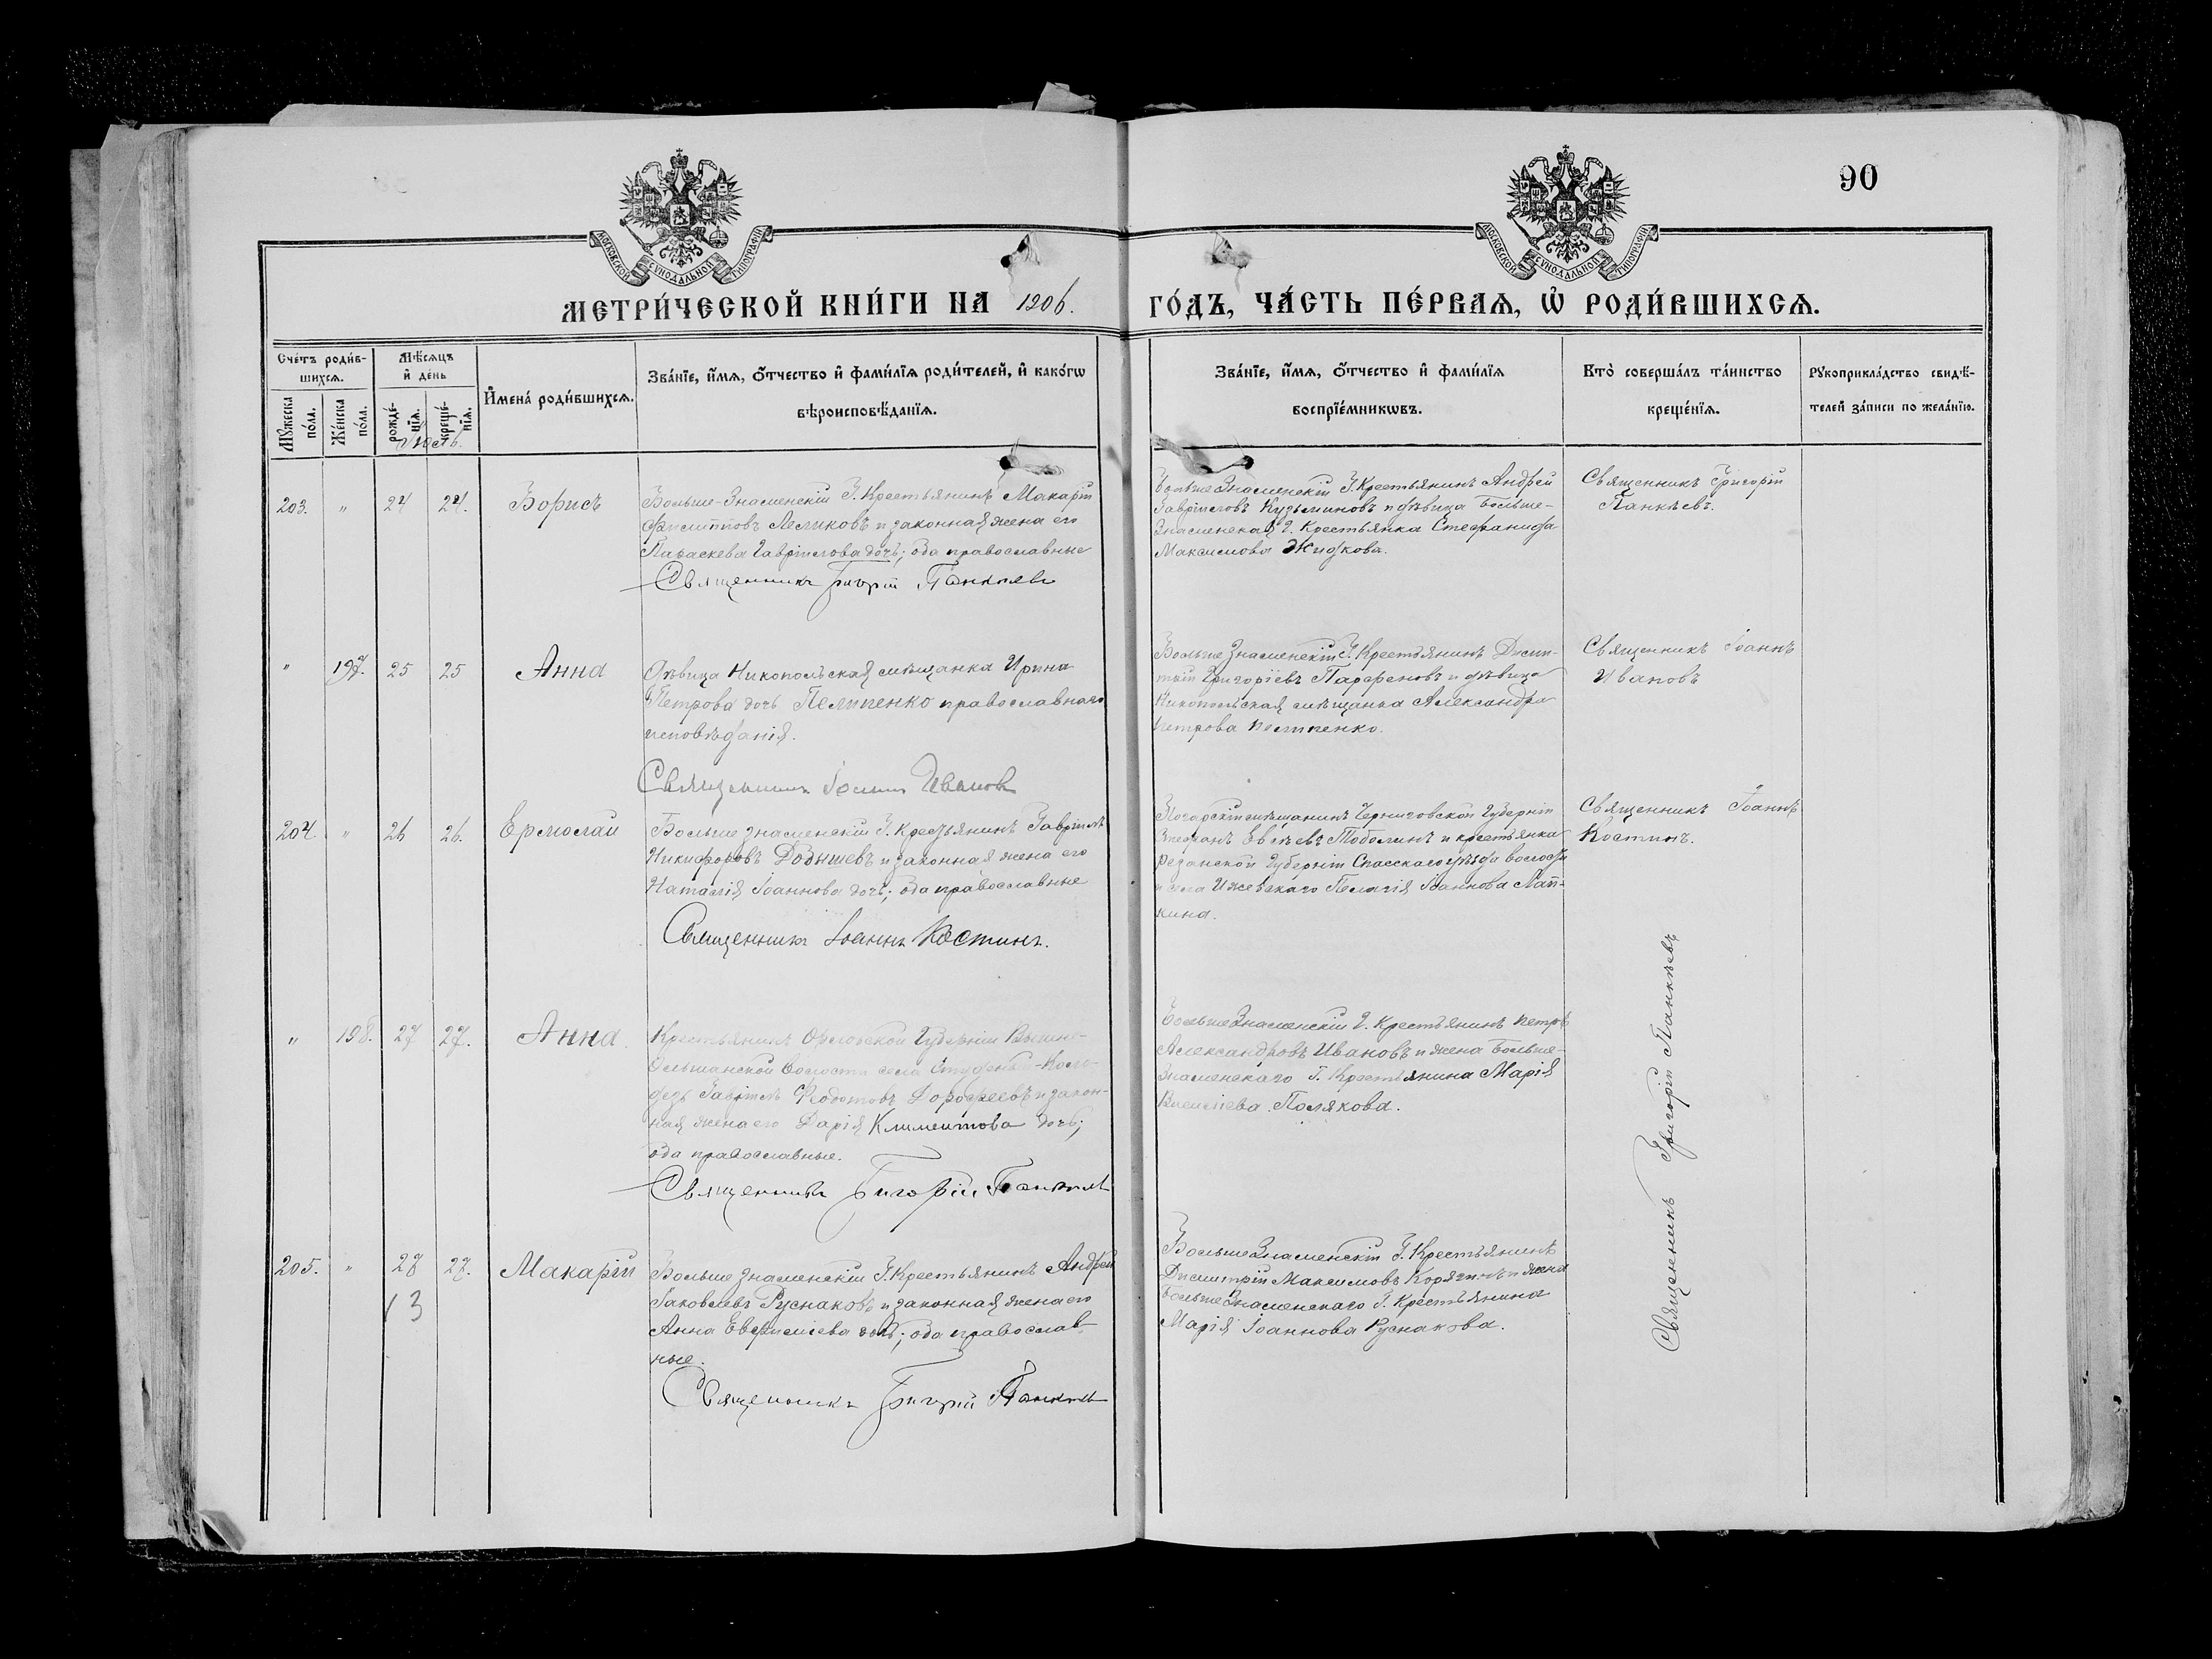 90
МОСКОВСКОЙ СѴНОДАЛЬНОЙ ТИПОГРАФІИ
МОСКОВСКОЙ СѴНОДАЛЬНОЙ ТИПОГРАФІИ
МЕТРИ́ЧЕСКОЙ КНИ́ГИ НА 1906. ГО́ДЪ, ЧА́СТЬ ПЕ́РВАѦ, Ѽ РОДИ́ВШИХСѦ.
Сче́тъ роди́в-
шихсѧ.
Мꙋ́жеска по́ла.
Же́нска по́ла.
Мѣ́сѧцъ
и҆ де́нь
рожде́-
нїѧ.
креще́-
нїѧ.
И҆мена̀ роди́вшихсѧ.
Зва́нїе, и҆́мѧ, ѻ҆́тчество и҆ фами́лїѧ роди́телей, и҆ како́гѡ
вѣроисповѣ́данїѧ.
Зва́нїе, и҆́мѧ, ѻ҆́тчество и҆ фами́лїѧ
воспрїе́мникѡвъ.
Кто̀ соверша́лъ та́инство
креще́нїѧ.
Рꙋкоприкла́дство свидѣ́-
телей за́писи по жела́нїю.
203. " 24 24. Борисъ
Больше-Знаменскій Г. Крестьянинъ Макарій
Филипповъ Лесликовъ и законная жена его
Параскева Гавріилова дочь; оба православные
Священникъ Григорій Панкѣевъ
Больше Знаменскій Г. Крестьянинъ Андрей
Гавріиловъ Кузьминовъ и дѣвица Больше-
Знаменская Г. Крестьянка Стефанида
Максимова Жидкова.
Священникъ Григорій
Панкѣевъ.
" 197. 25 25 Анна
Дѣвица Никопольская мѣщанка Ирина
Петрова дочь Пелипенко православнаго
исповѣданія.
Священникъ Іоаннъ Ивановъ
Больше Знаменскій Г. Крестьянинъ Дими-
трій Григоріевъ Парфеновъ и дѣвица
Никопольская мѣщанка Александра
Петрова Пелипенко.
Священникъ Іоаннъ
Ивановъ
204. " 26 26. Ермолай
Больше Знаменскій Г. Крестьянинъ Гавріилъ
Никифоровъ Добышевъ и законная жена его
Наталія Іоаннова дочь; оба православные
Священникъ Іоаннъ Костинъ.
Погарскій мѣщанинъ Черниговской Губерніи
Стефанъ Тоболинъ и крестьянка
Рязанской Губерніи Спасскаго уѣзда волости
и села Ижевскаго Пелагія Іоаннова Лап-
кина.
Священникъ Іоаннъ
Костинъ.
" 198. 27 27. Анна
Крестьянинъ Орловской Губерніи Вышне-
Ольшанской волости села Студеный-Коло-
дезь Гавріилъ Ѳедотовъ Дорофеевъ и закон-
ная жена его Дарія Климентова дочь;
оба православные.
Священникъ Григорій Панкѣевъ
Больше Знаменскій Г. Крестьянинъ Петръ
Александровъ Ивановъ и жена Больше-
Знаменскаго Г. Крестьянина Марія
Полякова.
Священникъ Григорій Панкѣевъ
205. " 27 27. Макарій
13
Больше Знаменскій Г. Крестьянинъ Андрей
Іаковлевъ Руснаковъ и законная жена его
Анна Евфиміева дочь; оба православ-
ные.
Священникъ Григорій Панкѣевъ
Больше Знаменскій Г. Крестьянинъ
Димитрій Максимовъ Корягинъ и жена
Больше Знаменскаго Г. Крестьянина
Марія Іоаннова Руснакова.